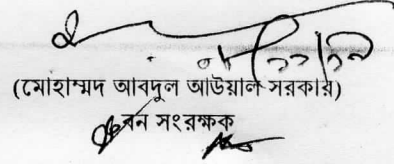 (মোহাম্মদ আবদুল আউয়াল সরকার)
বন সংরক্ষক